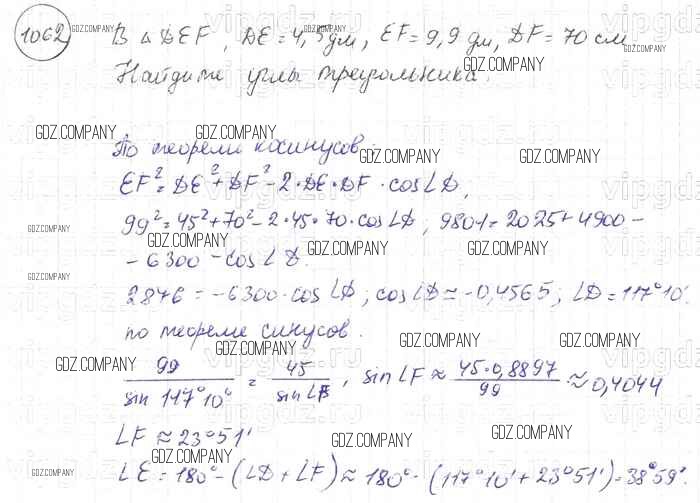 1062 В △DEF, DE = 4,5 дм, EF = 9,9 дм, DF = 70 см
Найдите углы треугольника.
По теореме косинусов
EF² = DE² + DF² - 2·DE·DF·cos∠D,
99² = 45² + 70² - 2·45·70·cos∠D; 9801 = 2025 + 4900 -
- 6300 - cos∠D.
2876 = -6300·cos∠D; cos∠D ≈ -0,4565; ∠D = 117°10'
по теореме синусов.
99/sin 117°10' = 45/sin∠F, sin∠F ≈ 45·0,8897/99 ≈ 0,4044
∠F ≈ 23°51'
∠E = 180° - (∠D + ∠F) ≈ 180° - (117°10' + 23°51') = 38°59'.
GDZ.COMPANY
vipgdz.ru